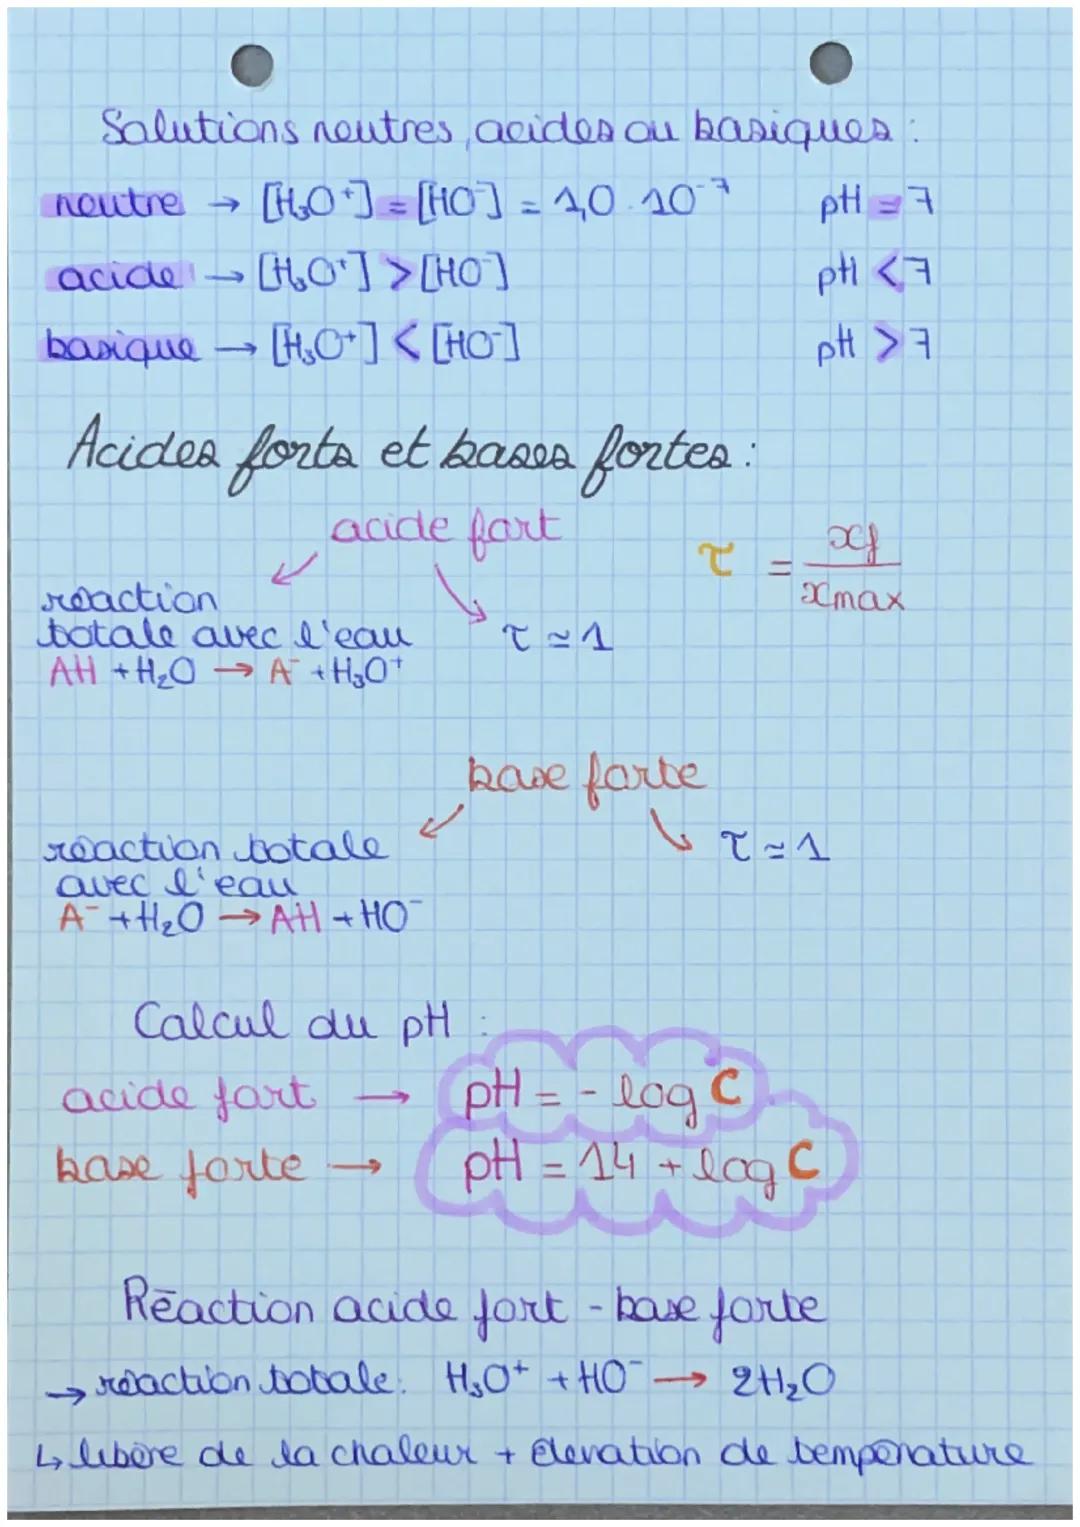 Solutions neutres, acides ou basiques :
neutre → [H₃O⁺] = [HO⁻] = 1,0 . 10⁻⁷ pH = 7
acide → [H₃O⁺] > [HO⁻] pH < 7
basique → [H₃O⁺] < [HO⁻] pH > 7
Acides forts et bases fortes :
acide fort
τ = xf / xmax
réaction
totale avec l'eau τ ≃ 1
AH + H₂O → A⁻ + H₃O⁺
base forte
réaction totale τ ≃ 1
avec l'eau
A⁻ + H₂O → AH + HO⁻
Calcul du pH :
acide fort → pH = - log C
base forte → pH = 14 + log C
Réaction acide fort - base forte
→ réaction totale : H₃O⁺ + HO⁻ → 2H₂O
↳ libère de la chaleur + élevation de température